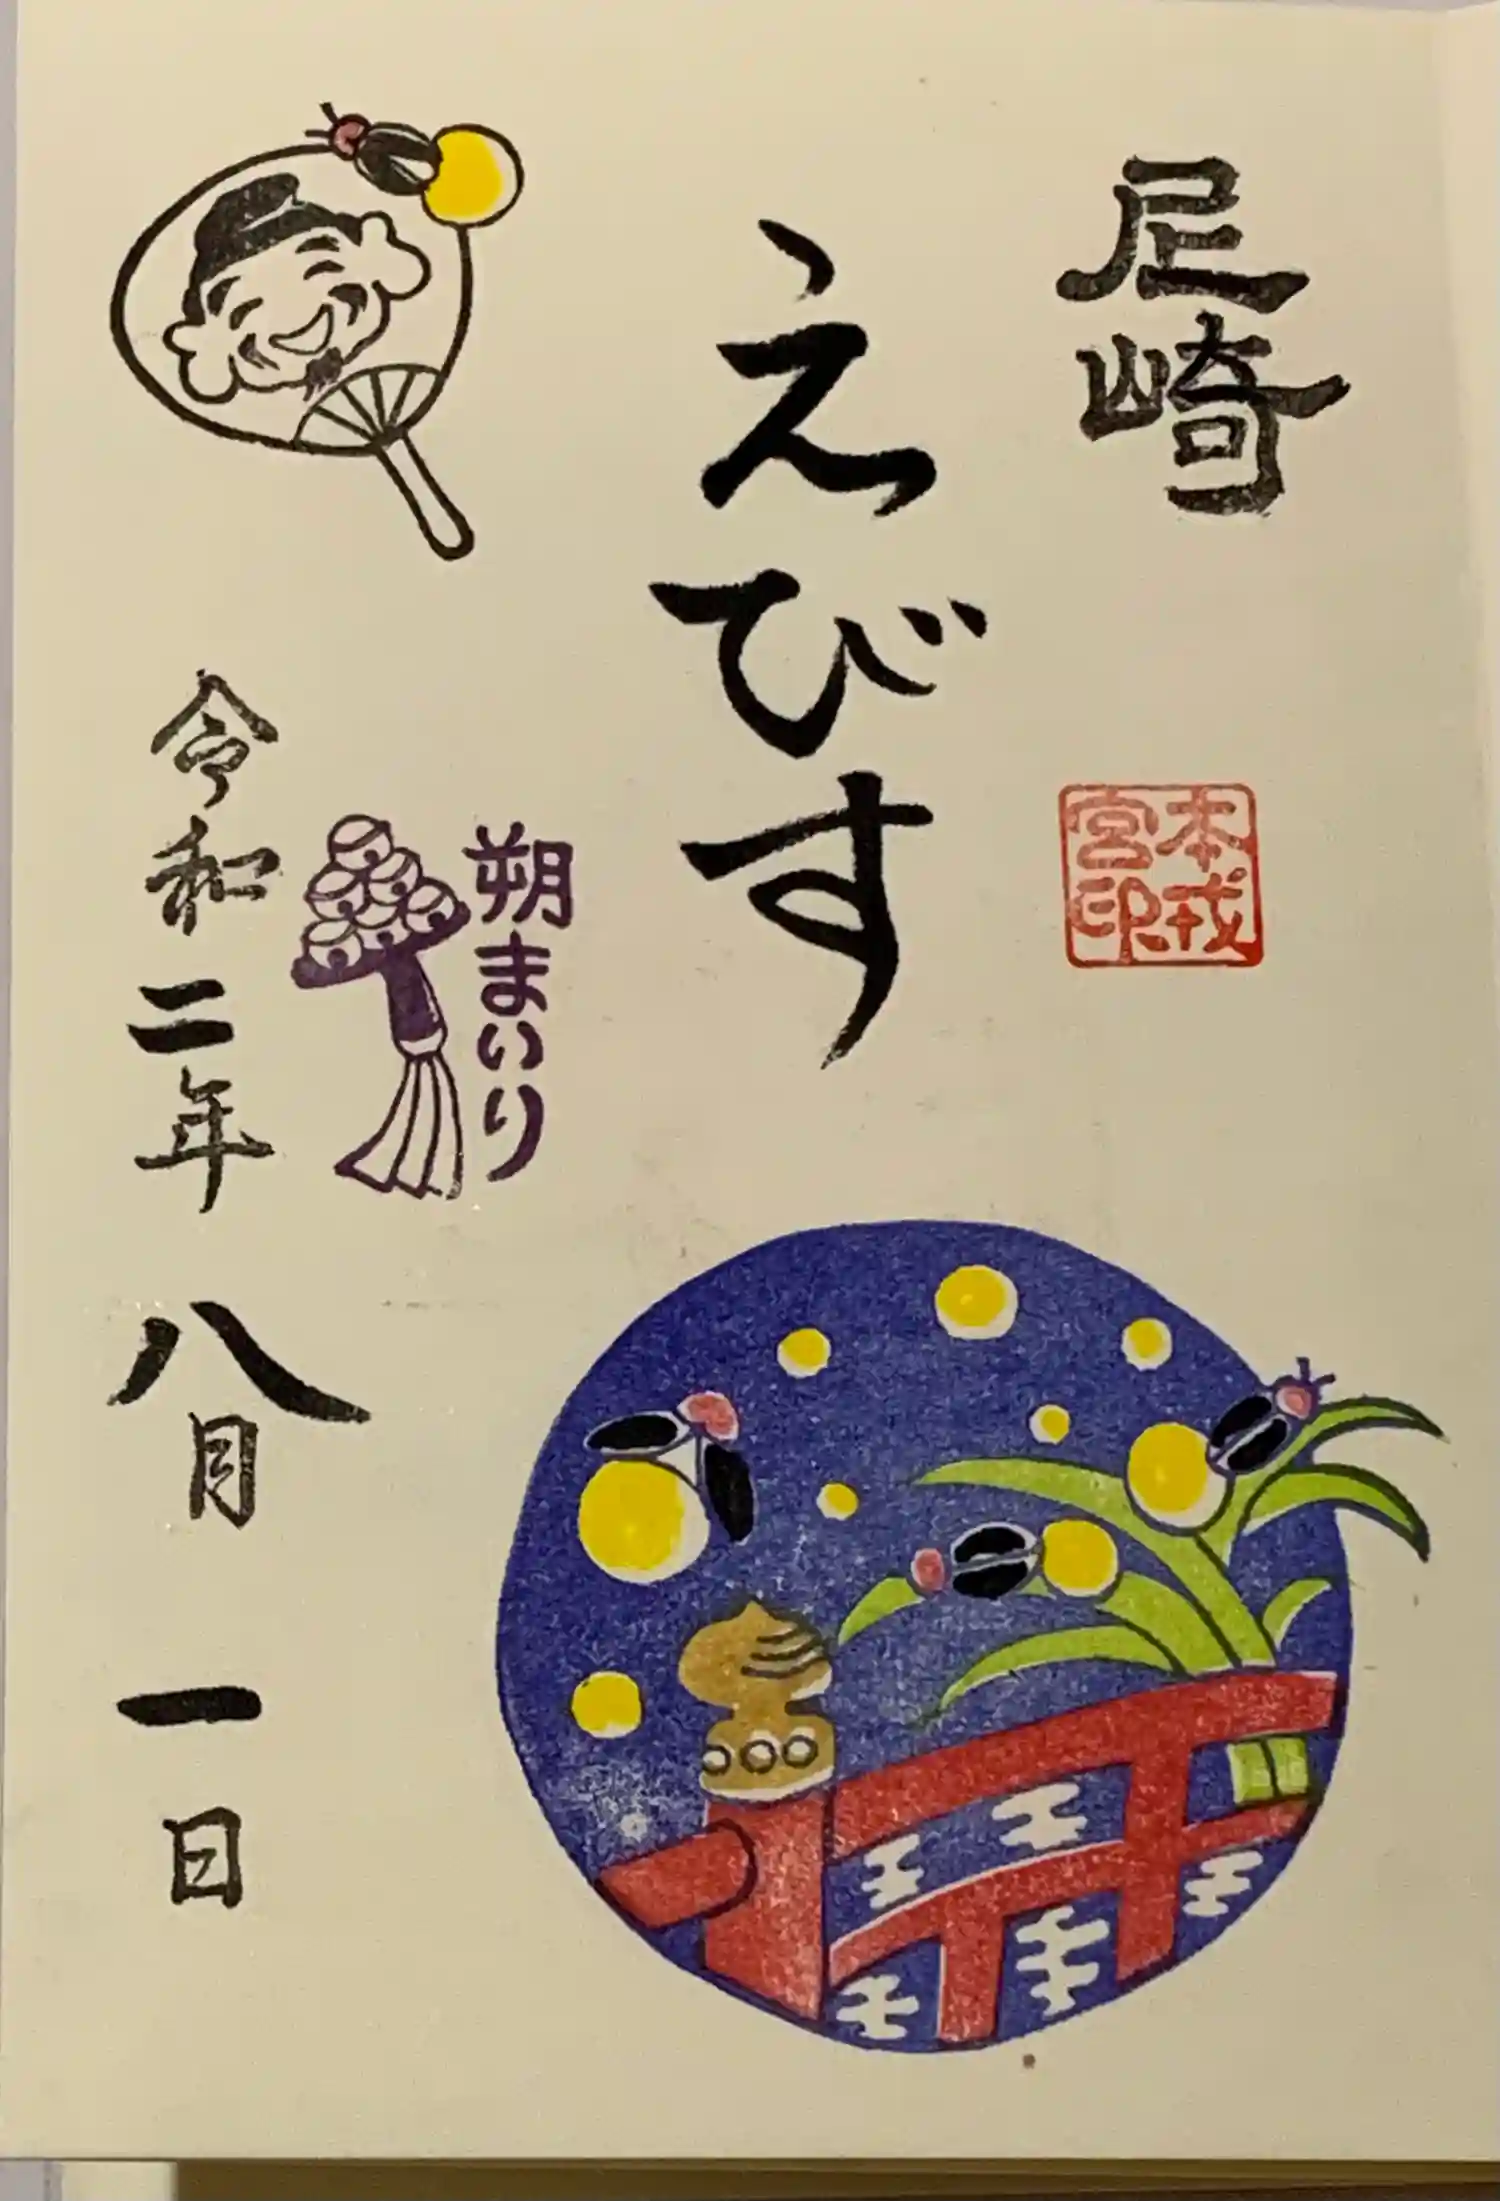 尼崎
本戎
宮印
えびす
朔まいり
令和二年八月一日